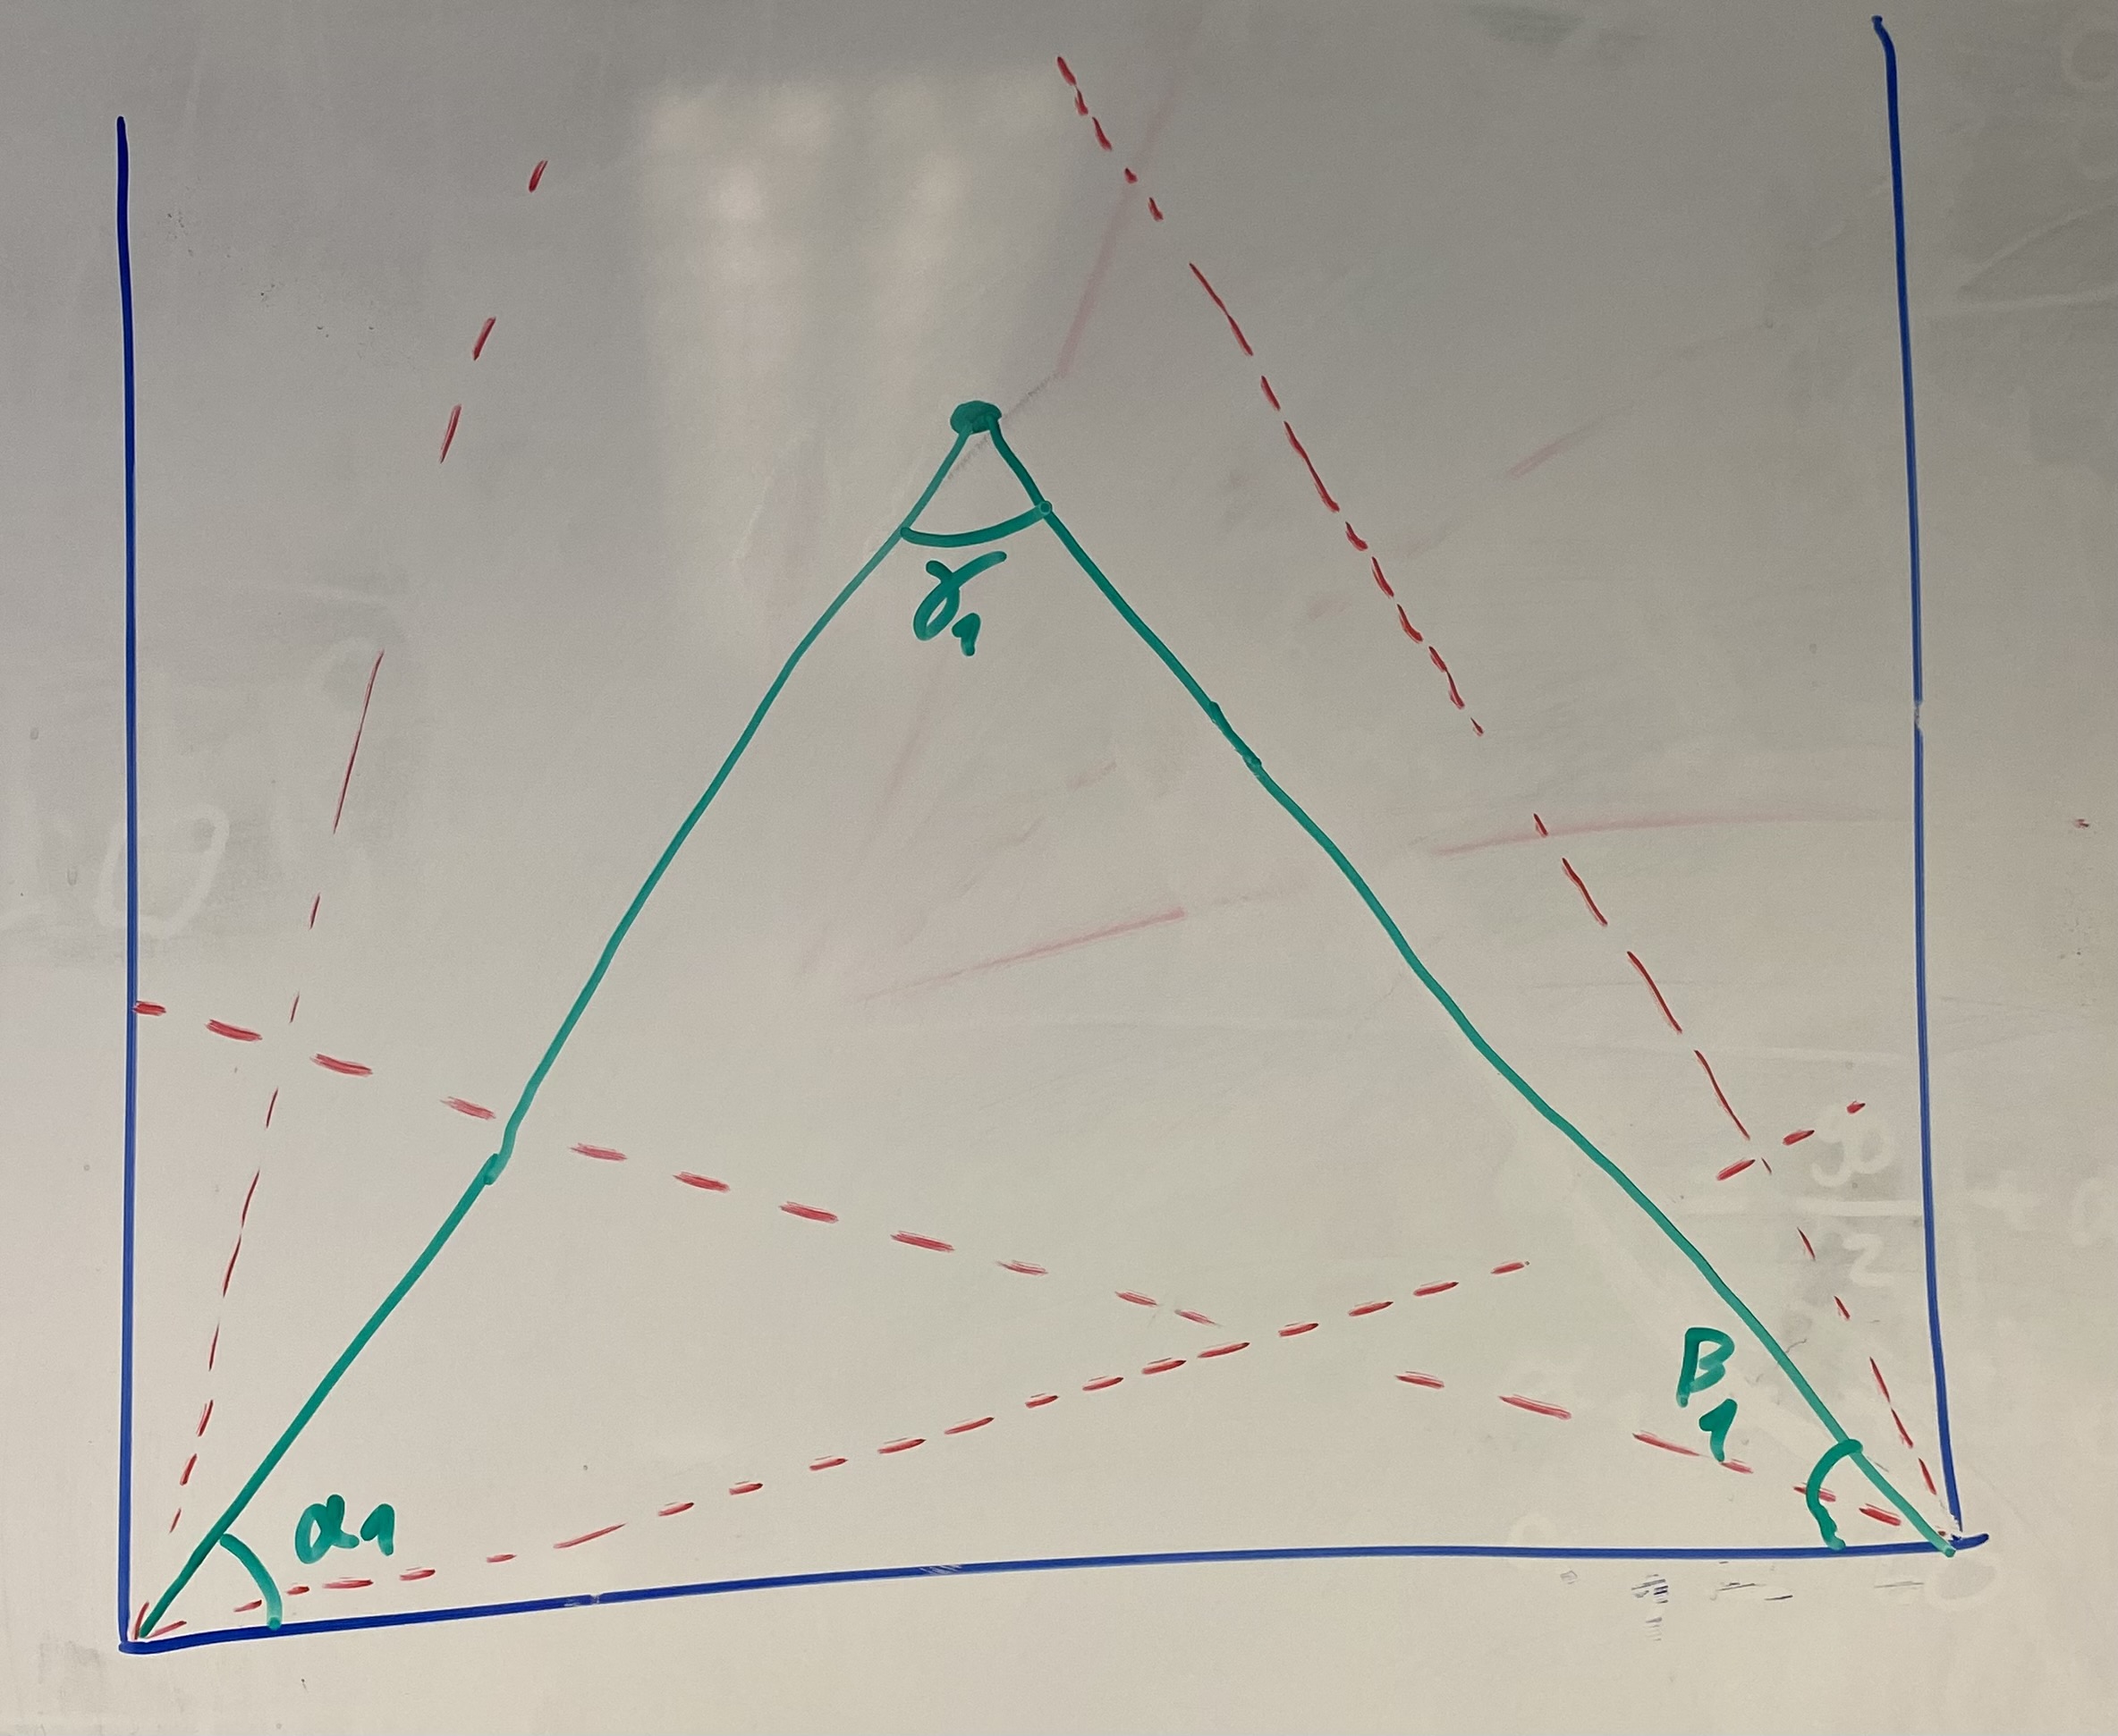 γ₁
β₁
α₁